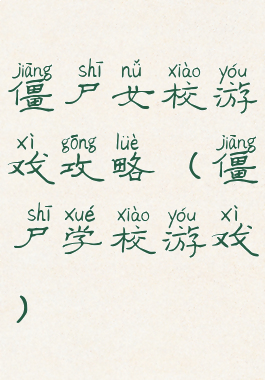 jiāng shī nǚ xiào yóu
僵尸女校游
xì gōng lüè jiāng
戏攻略（僵
shī xué xiào yóu xì
尸学校游戏
）